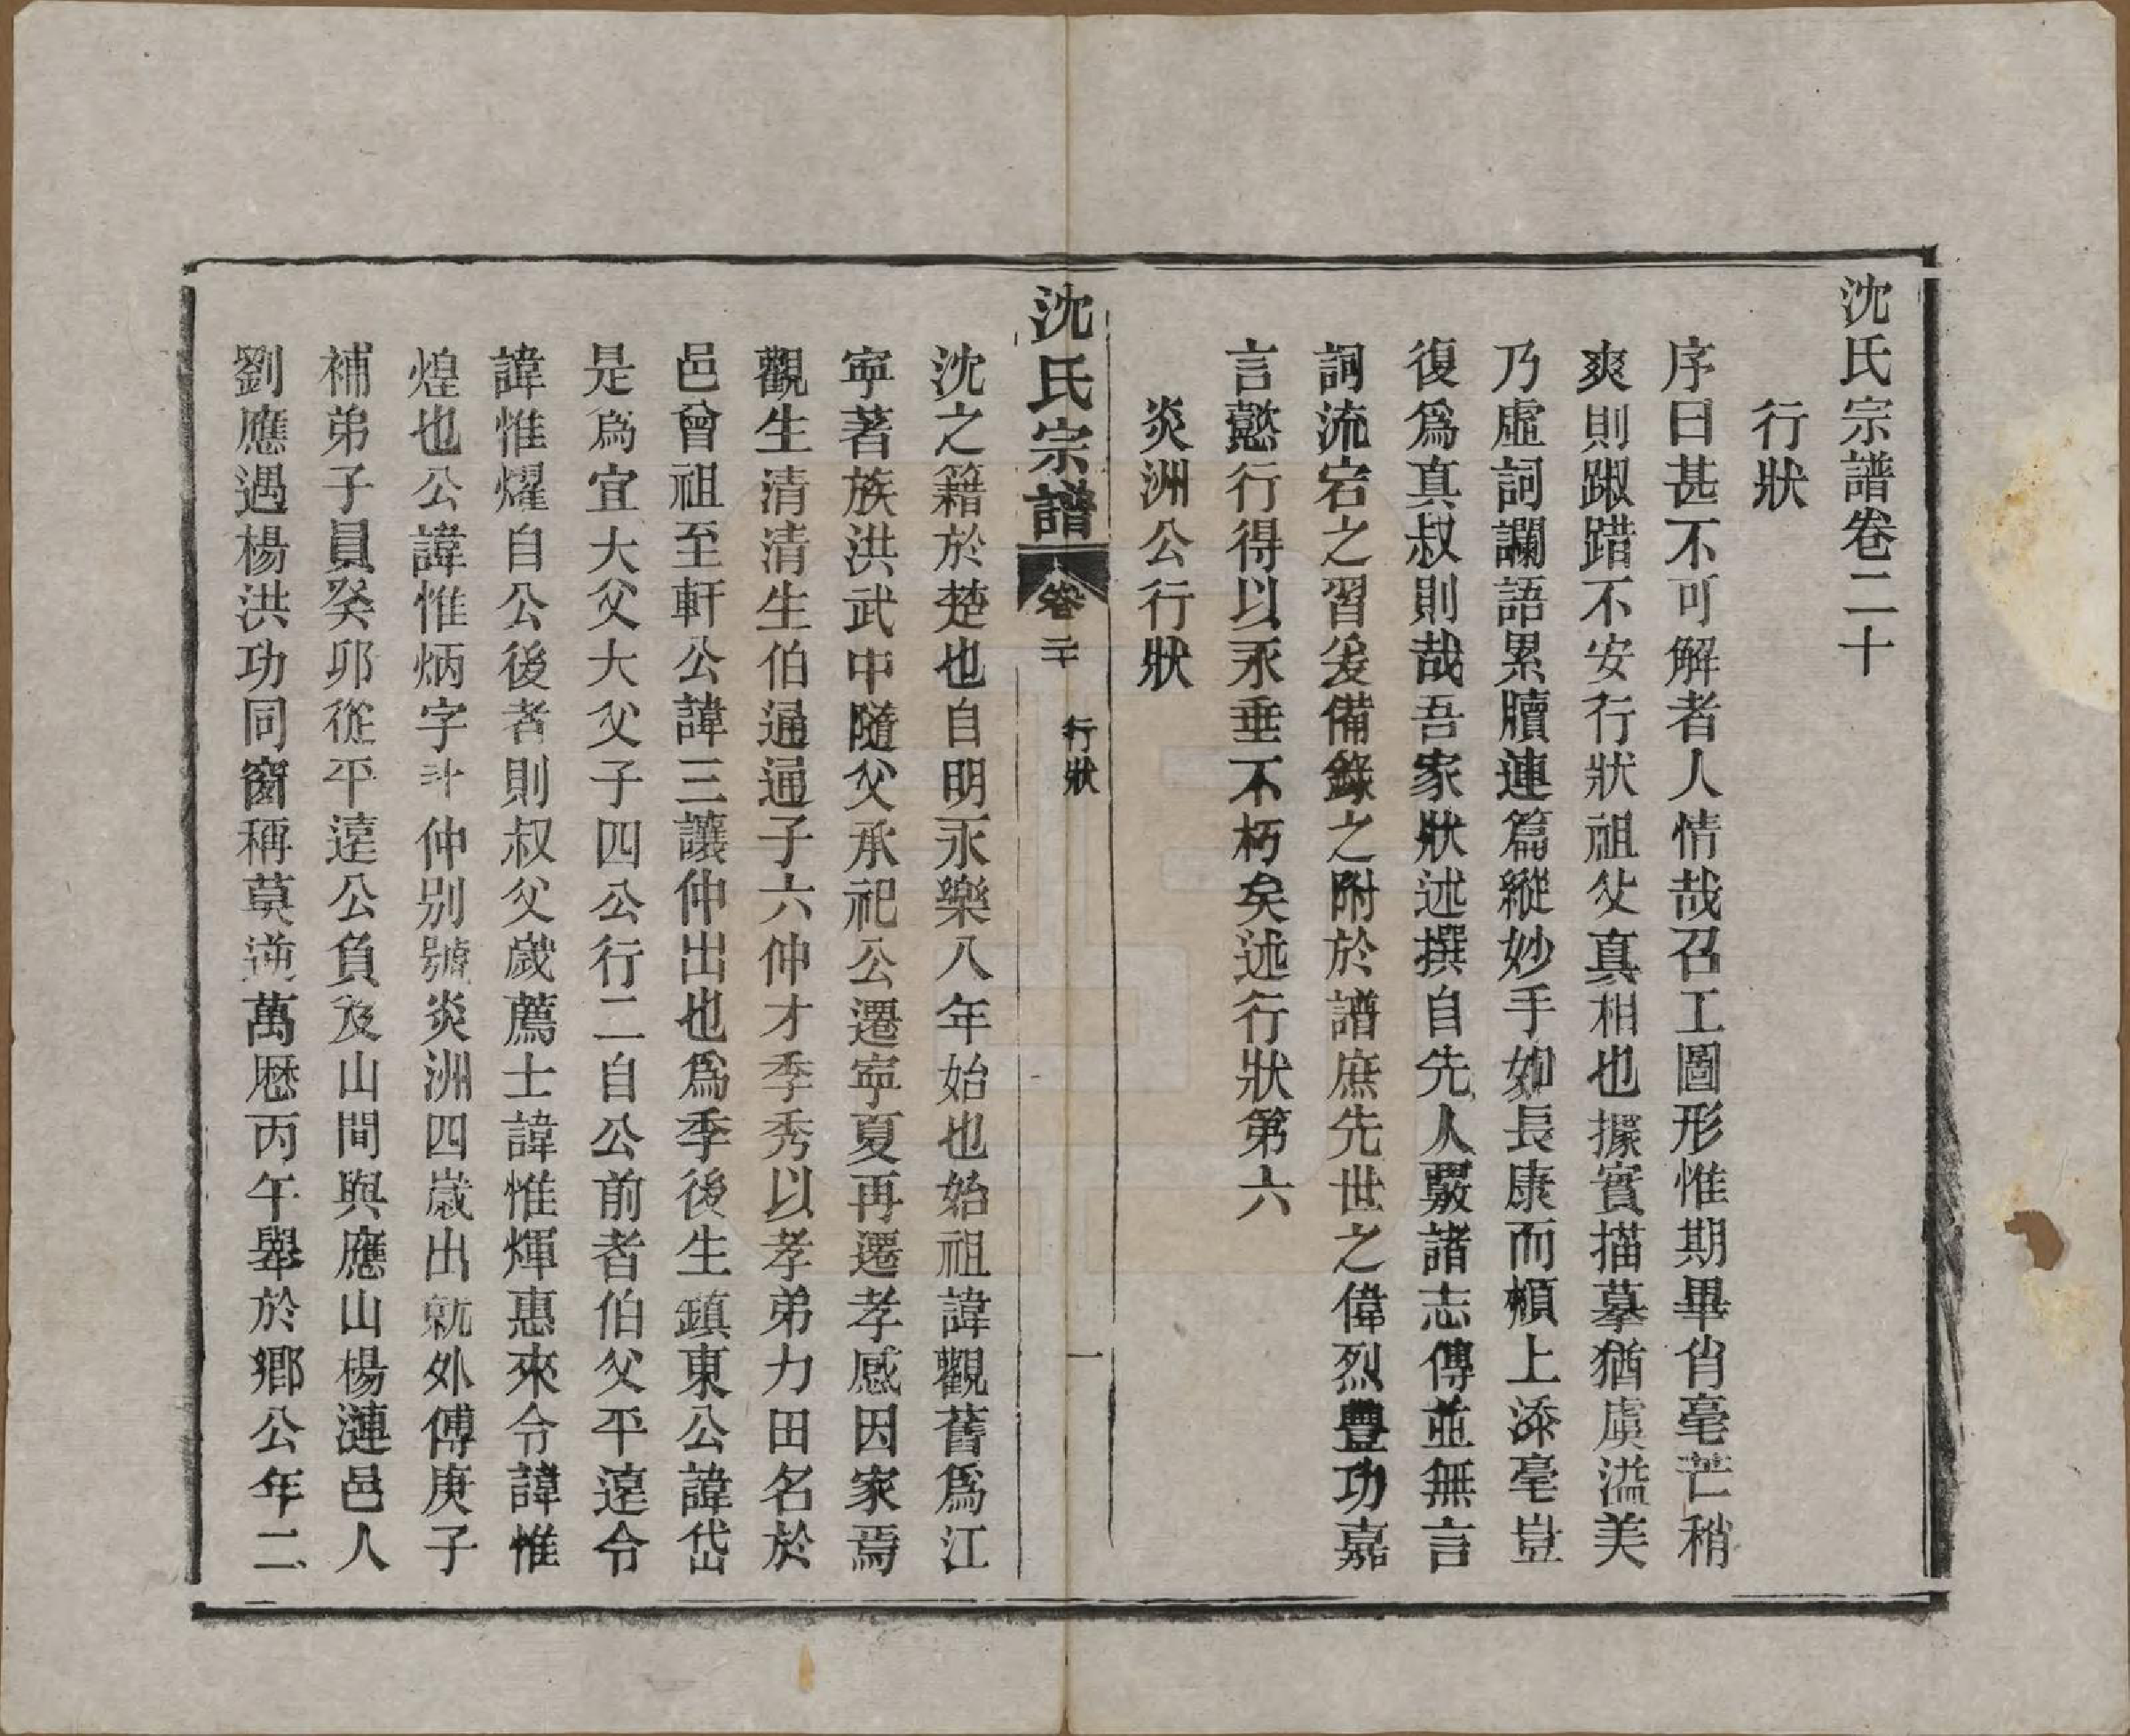 沈氏宗譜卷二十
行狀
序曰甚不可解者人情哉召工圖形惟期畢肖毫芒稍
爽則踧踖不安行狀祖父真相也據實描摹猶虞溢美
乃虛詞讕語累牘連篇縱妙手如長康而頰上添毫豈
復爲真叔則哉吾家狀述撰自先人覈諸志傳並無言
詞流宕之習爰備錄之附於譜庶先世之偉烈豐功嘉
言懿行得以永垂不朽矣述行狀第六
炎洲公行狀
沈氏宗譜
卷二十
行狀
一
沈之籍於楚也自明永樂八年始也始祖諱觀舊爲江
寧著族洪武中隨父承祀公遷寧夏再遷孝感因家焉
觀生清清生伯通通子六仲才季秀以孝弟力田名於
邑曾祖至軒公諱三讓仲出也爲季後生鎮東公諱岱
是爲宜大父大父子四公行二自公前者伯父平遠令
諱惟燿自公後者則叔父歲薦士諱惟煇惠來令諱惟
煌也公諱惟炳字斗仲別號炎洲四歲出就外傅庚子
補弟子員癸卯從平遠公負笈山間與應山楊漣邑人
劉應遇楊洪功同窗稱莫逆萬歷丙午舉於鄉公年二